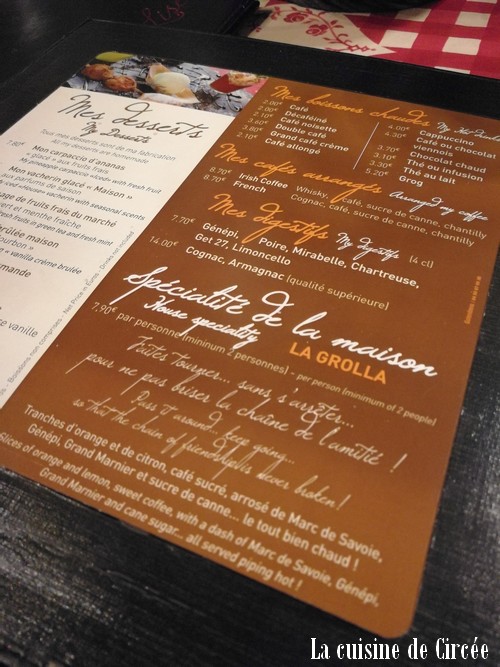 Mes desserts
My Desserts
Tous mes desserts sont de ma fabrication
All my desserts are homemade
7.80€ Mon carpaccio d'ananas
glacé + aux fruits frais
My pineapple carpaccio iced with fresh fruit
Mon vacherin glacé « Maison »
aux parfums de saison
iced vacherin with seasonal scents
fruits frais du marché
et menthe fraîche
fresh fruits in green tea and fresh mint
brûlée maison
bourbon »
vanilla crème brûlée
vanille
Boissons non comprises - Net Price in Euros - Drinks not included
Mes boissons chaudes
My Hot drinks
2.00€ Café
2.00€ Décaféiné
2.10€ Café noisette
3.60€ Double café
3.60€ Grand café crème
2.10€ Café allongé
4.00€ Cappuccino
4.30€ Café ou chocolat
viennois
3.70€ Chocolat chaud
3.10€ Thé ou infusion
3.30€ Thé au lait
5.20€ Grog
Mes cafés arrangés
Arranged my coffee
8.70€ Irish Coffee Whisky, café, sucre de canne, chantilly
8.70€ French Cognac, café, sucre de canne, chantilly
Mes digestifs My digestifs (4 cl)
7.70€ Génépi, Poire, Mirabelle, Chartreuse,
Get 27, Limoncello
14.00€ Cognac, Armagnac (qualité supérieure)
Spécialité de la maison
House speciality LA GROLLA
7,90€ par personne (minimum 2 personnes) - per person (minimum of 2 people)
Faites tourner... sans s'arrêter...
pour ne pas briser la chaîne de l'amitié !
Pass it around, keep going...
so that the chain of friendship is never broken!
Tranches d'orange et de citron, café sucré, arrosé de Marc de Savoie,
Génépi, Grand Marnier et sucre de canne... le tout bien chaud !
Slices of orange and lemon, sweet coffee, with a dash of Marc de Savoie, Génépi,
Grand Marnier and cane sugar... all served piping hot !
La cuisine de Circée